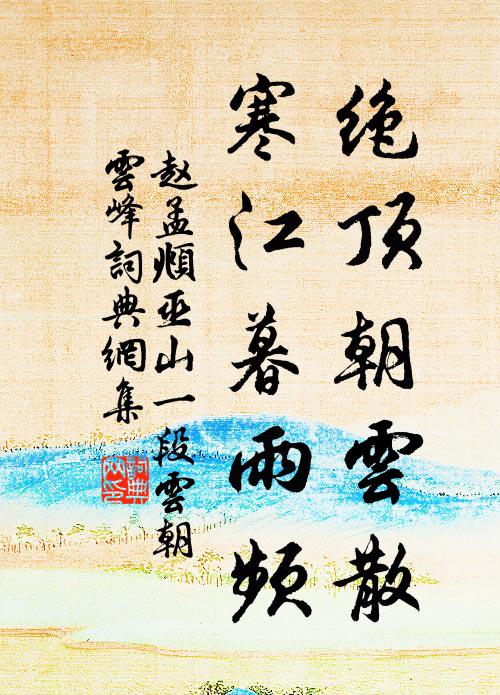 绝顶朝雲散
寒江暮雨频
赵孟頫巫山一段雲朝
雲峰詞典網集